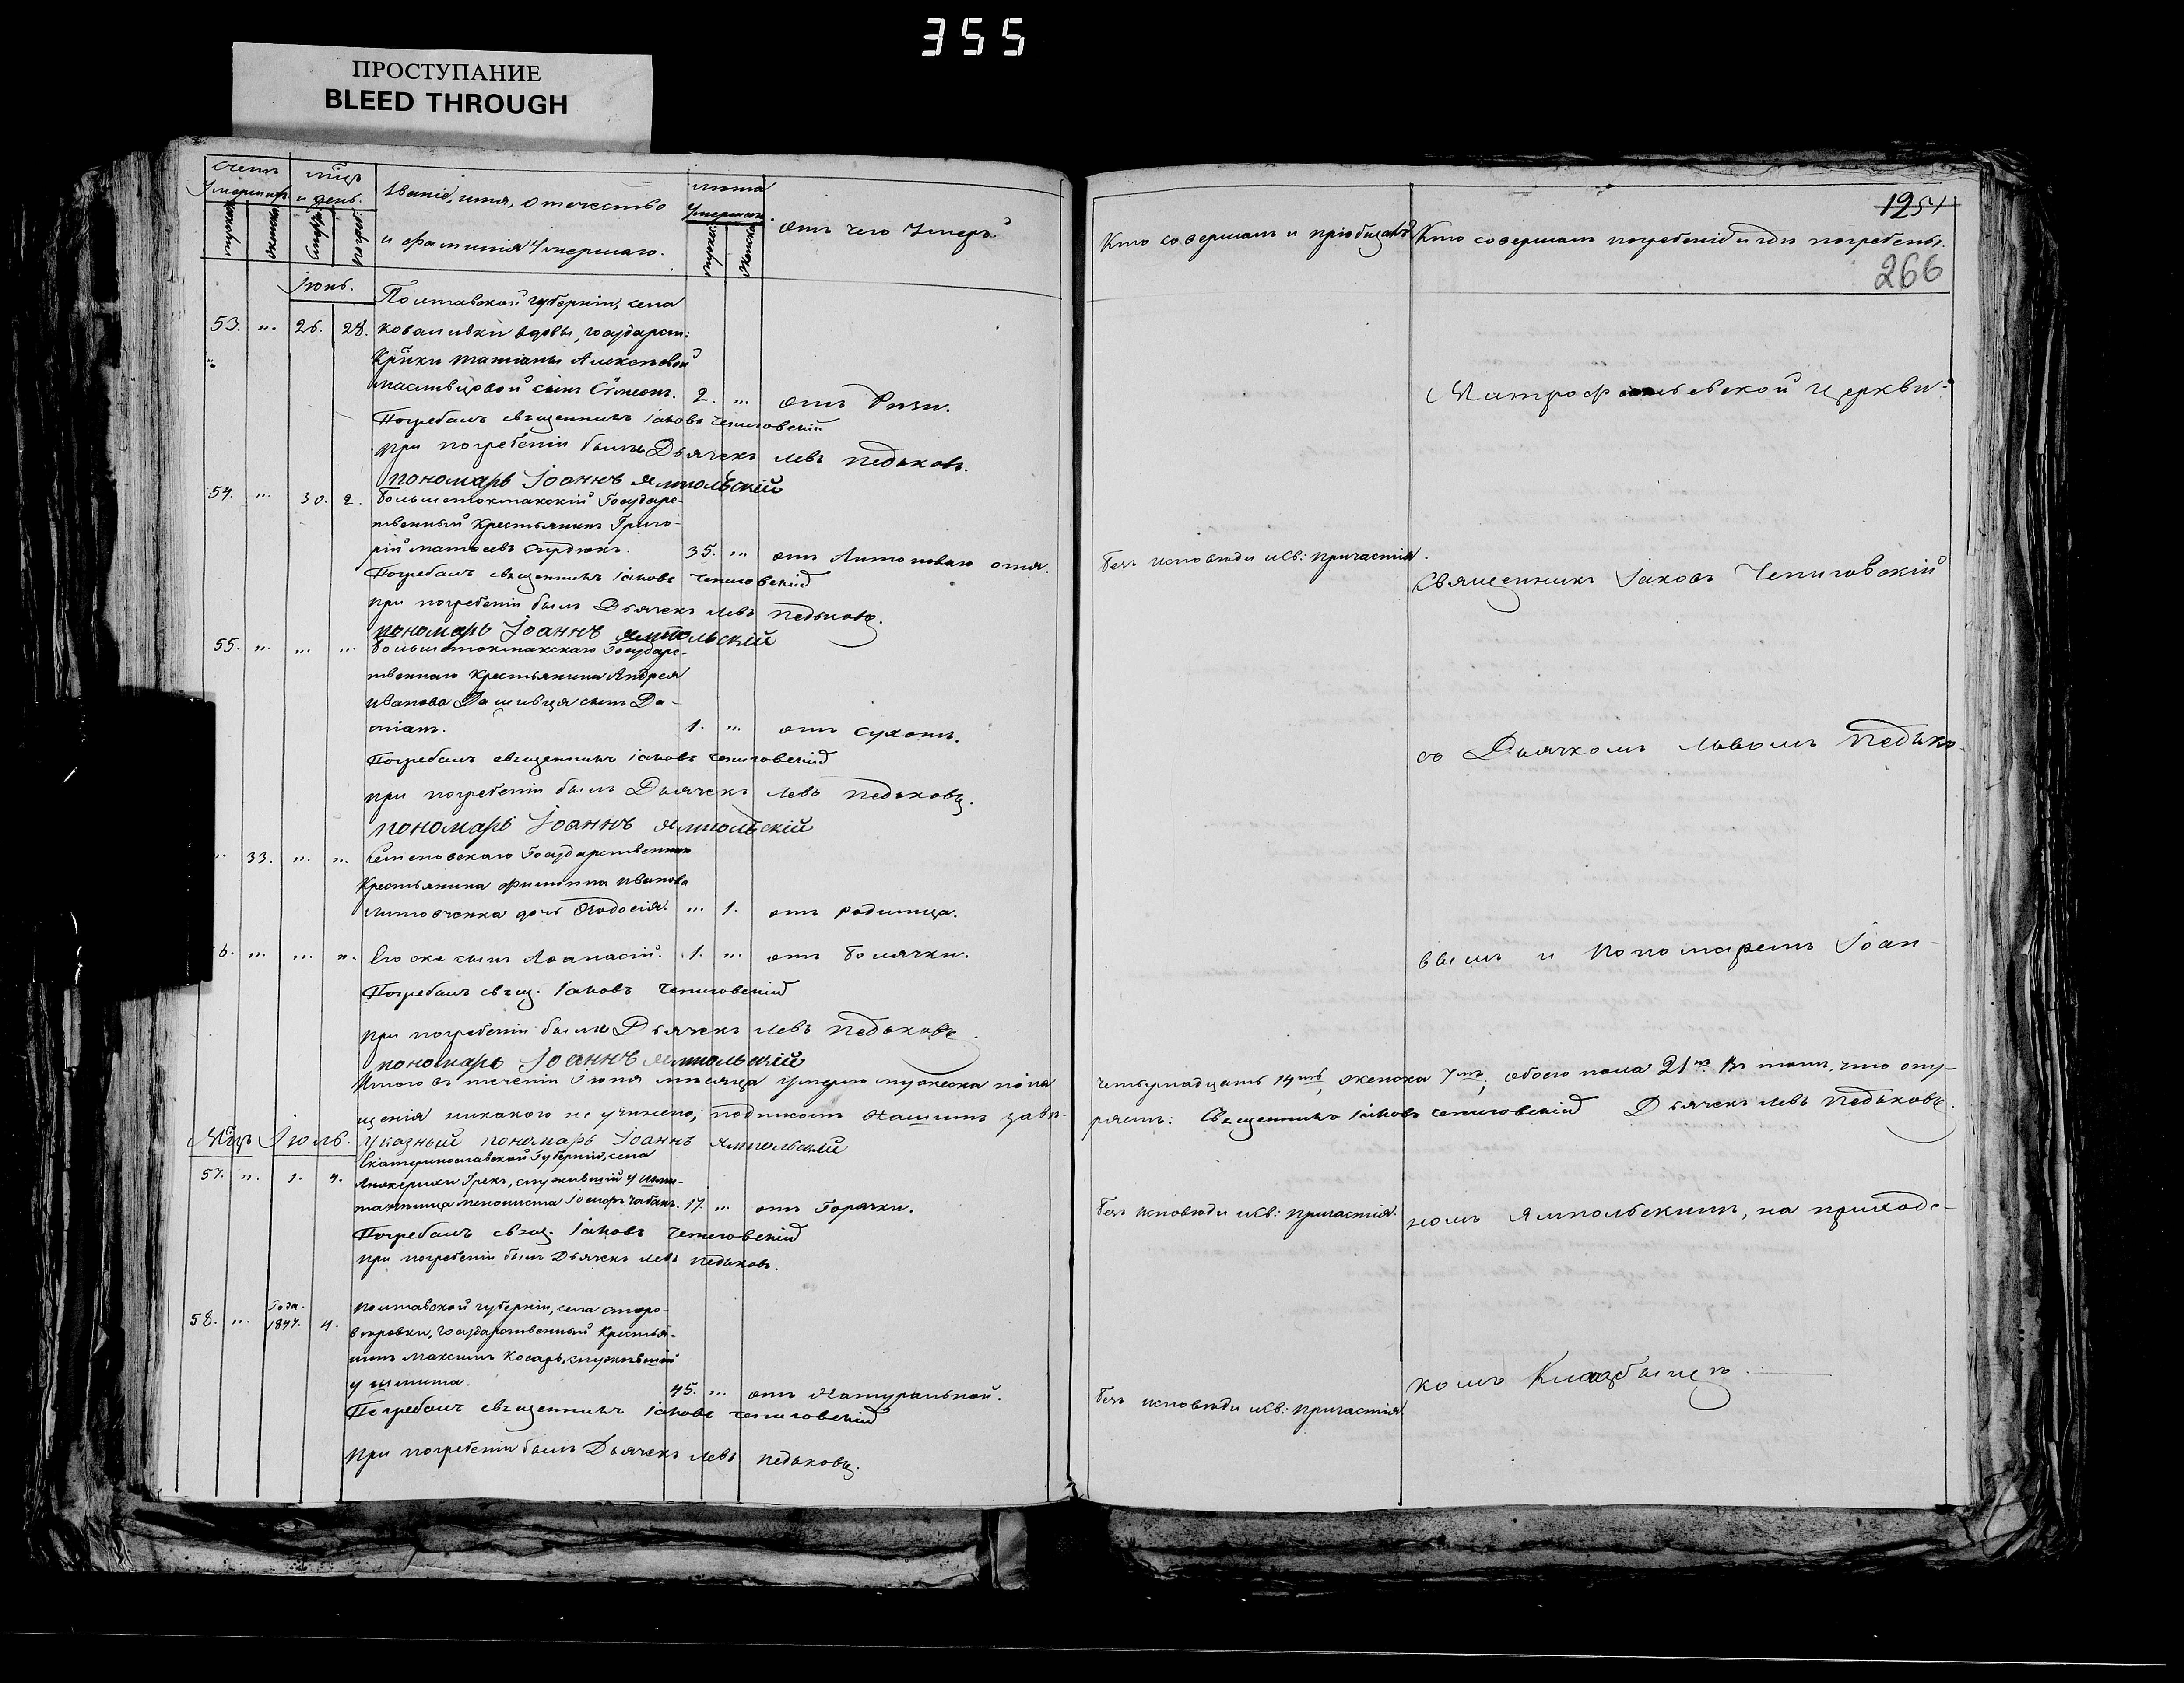 355
ПРОСТУПАНИЕ
BLEED THROUGH
Счетъ Умершихъ.
мужска
женска
мцъ и день.
Смерт
погреб
Званіе, имя, отечество
и фамилія Умершаго.
лета Умершаго.
мужес
женска
отъ чего Умеръ
Кто совершалъ и пріобщалъ
Кто совершалъ погребеніе и гдѣ погребены.
1251
266
Іюнь.
Полтавской губерніи, села
53. „ 26. 28. Коваливки вдовы, государст:
Кр̃нки Татіаны Алексѣевой
сынъ Сѵмеонъ. 2. „ отъ Ризи.
Погребалъ священникъ Іаковъ Чепиговскій
при погребеніи былъ Дьячекъ Левъ Педьковъ.
пономарь Іоаннъ Ямпольскій
54. „ 30. 2. Большетокмакскій Государс-
твенный Крестьянинъ Григо-
рій Матѳеевъ Сердюкъ. 35. „ отъ Антонова огня. Безъ исповѣди и Св: Причастія.
Погребалъ священникъ Іаковъ Чепиговскій
при погребеніи былъ Дьячекъ Левъ Педьковъ.
пономарь Іоаннъ Ямпольскій
55. „ „ „ Большетокмакскаго Государс-
твеннаго Крестьянина Андрея
Иванова сынъ Да-
ніилъ. 1. „ отъ сухотъ.
Погребалъ священникъ Іаковъ Чепиговскій
при погребеніи былъ Дьячекъ Левъ Педьковъ.
пономарь Іоаннъ Ямпольскій
„ 33. „ „ Семеновскаго Государственнаго
Крестьянина Филиппа Иванова
Литовченка дочь Ѳеодосія. „ 1. отъ родимца.
6. „ „ „ Его же сынъ Аѳанасій. 1. „ отъ Болячки.
Погребалъ свящ. Іаковъ Чепиговскій
при погребеніи былъ Дьячекъ Левъ Педьковъ.
пономарь Іоаннъ Ямпольскій
Итого въ теченіи Іюня мѣсяца умерло мужеска пола четырнадцать 14ть, женска 7мь, обоего пола 21нъ. Въ томъ, что опу-
щенія никакого не учинено, подписомъ Нашимъ завѣ-
ряемъ: Священникъ Іаковъ Чепиговскій Дьячекъ Левъ Педьковъ.
Указный пономарь Іоаннъ Ямпольскій
Мцъ Іюль.
Екатеринославской Губерніи, села
57. „ 2. 4. Грекъ, служившій у
менониста 17. „ отъ Горячки. Безъ исповѣди и Св: Причастія.
Погребалъ свящ. Іаковъ Чепиговскій
при погребеніи былъ Дьячекъ Левъ Педьковъ.
58. „ Года. 1847. 4. Полтавской губерніи, села
государственный Крестья-
нинъ Максимъ Косарь, служившій
у 45. „ отъ Натуральной. Безъ исповѣди и Св: Причастія
Погребалъ священникъ Іаковъ Чепиговскій
при погребеніи былъ Дьячекъ Левъ Педьковъ.
Митрофаньевской Церкви:
Священникъ Іаковъ Чепиговскій
съ Дьячкомъ Львомъ Педько-
вымъ и Пономаремъ Іоан-
номъ Ямпольскимъ, на приходс-
комъ Кладбищѣ.